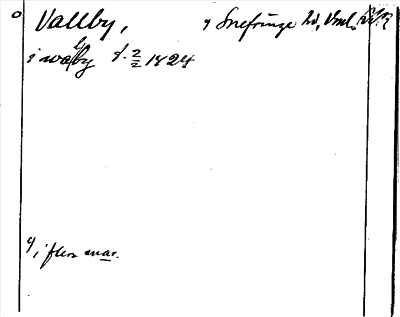 Vallby, Snefringe hd, Vml.
i walby d. 2/2 1424
i flera